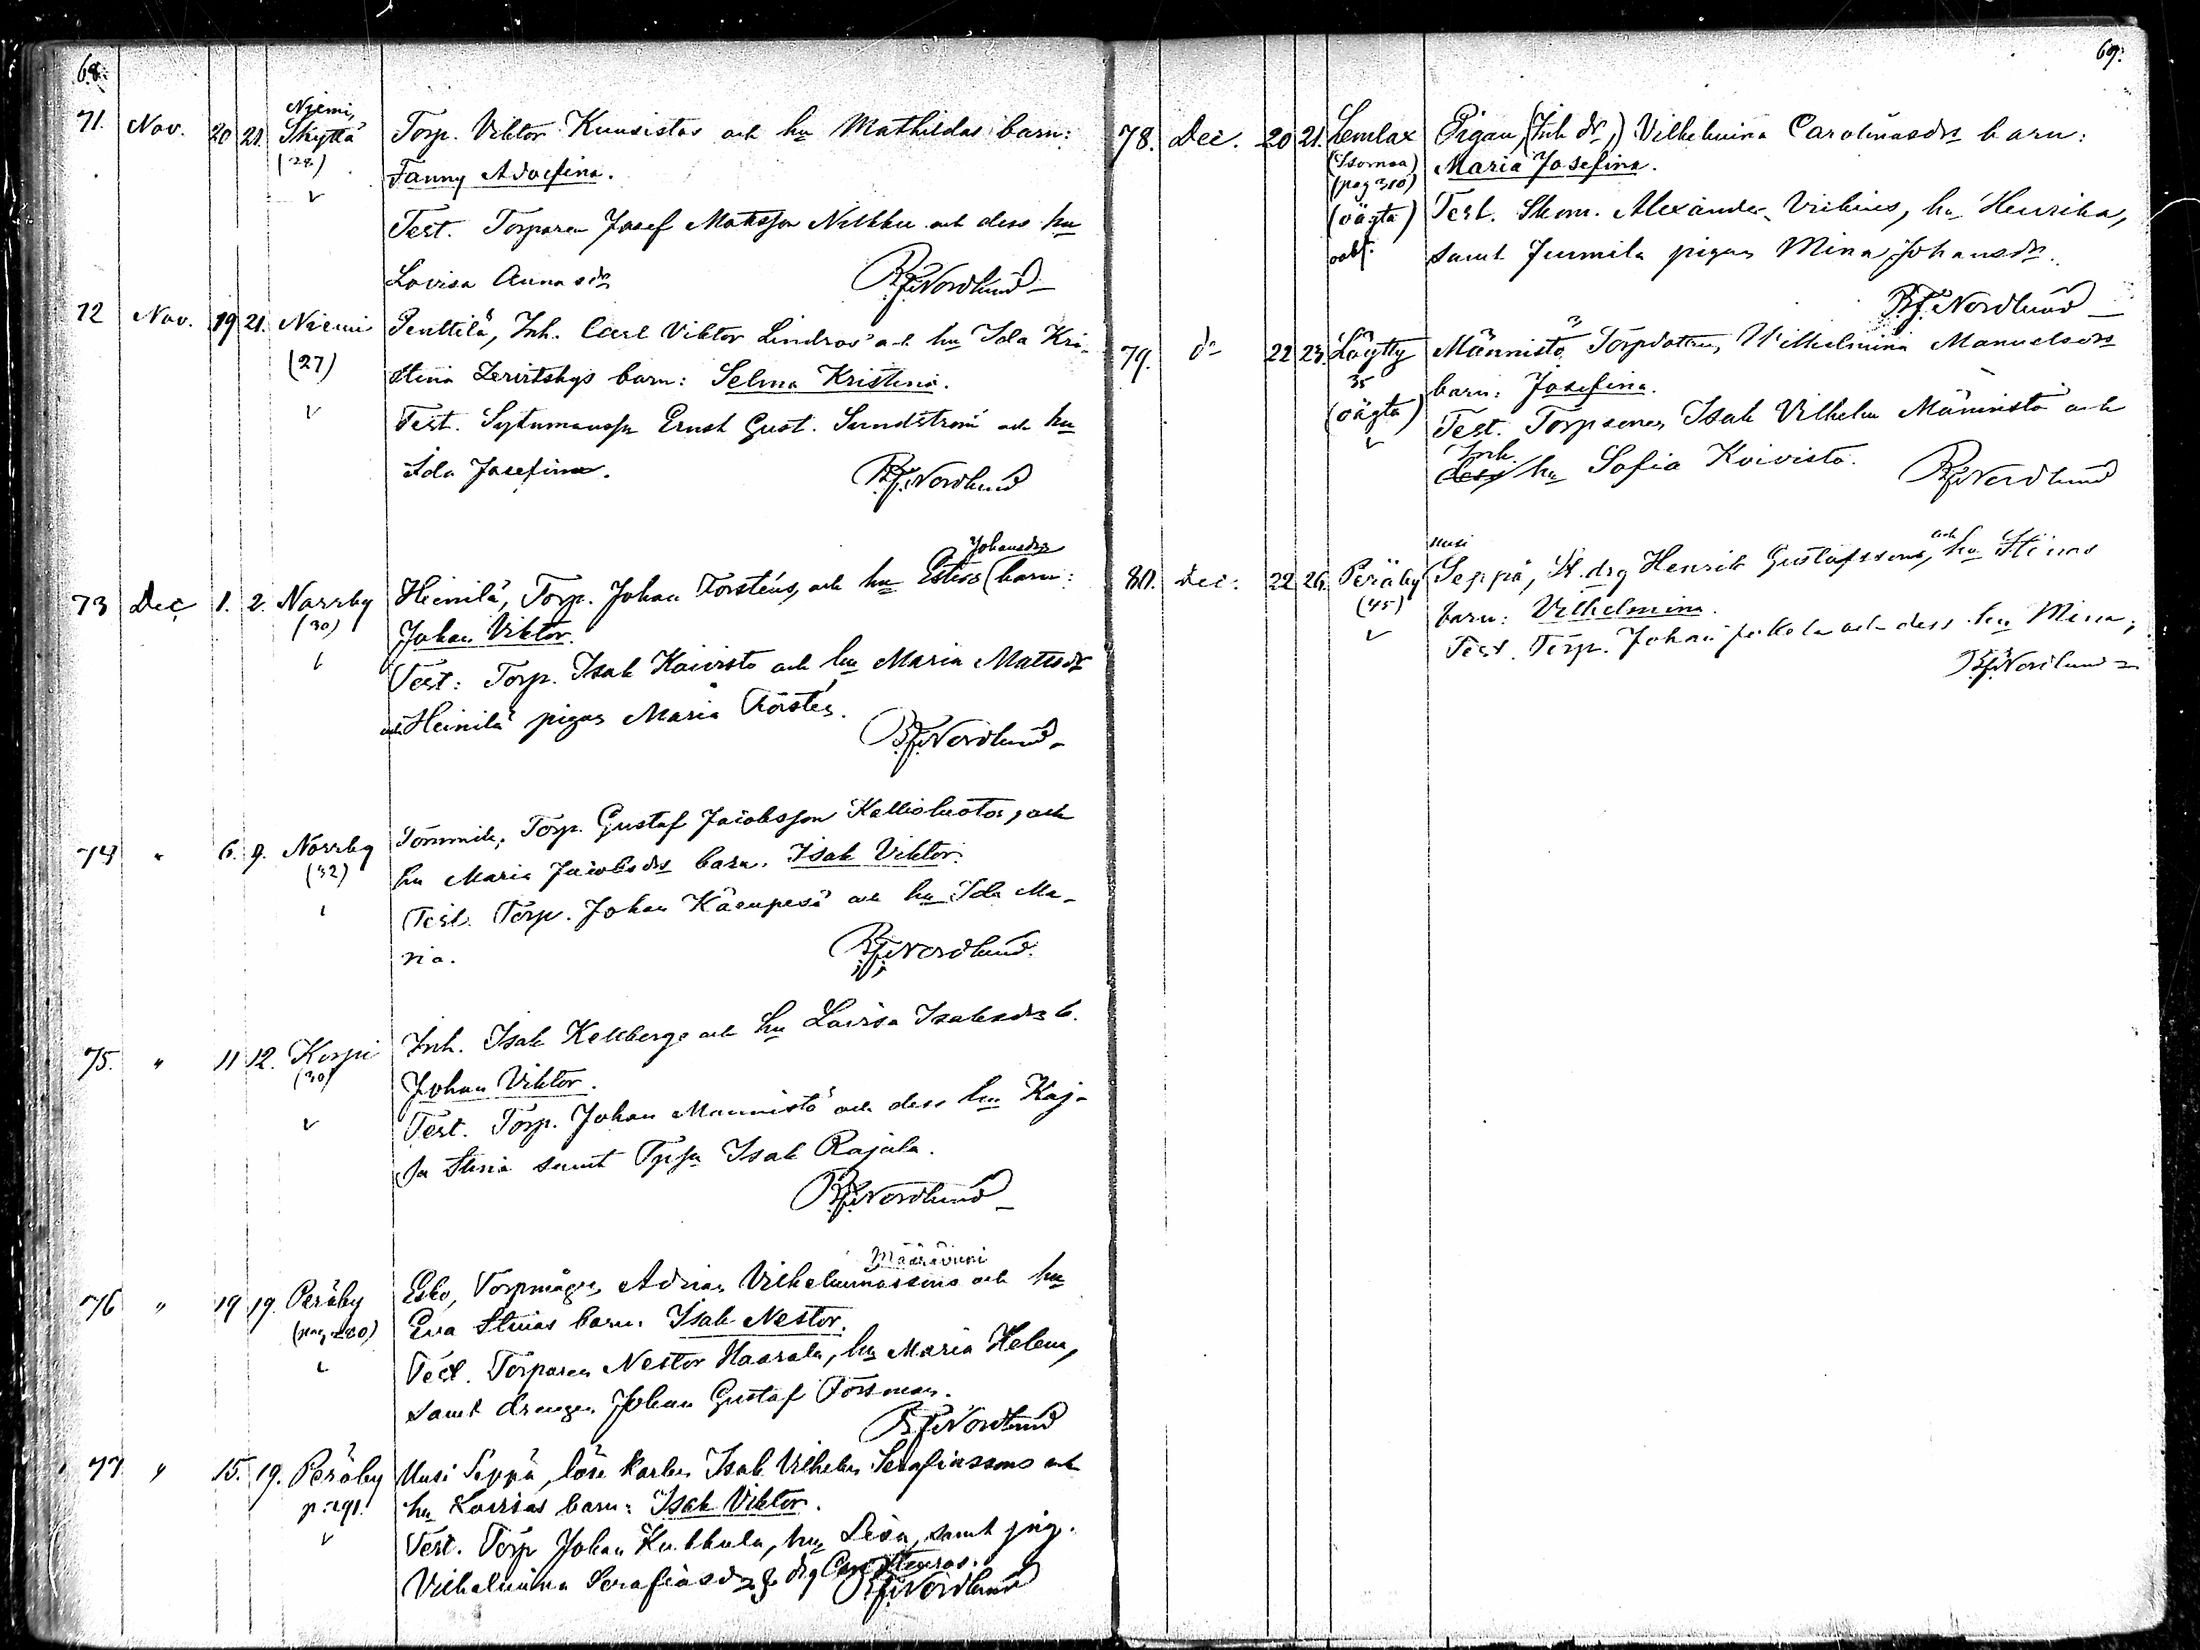 68.
71. Nov. 20 21. Niemi, Skyttä (28) Torp. Viktor Kuusistos och hu Mathildas barn:
Fanny Adolfina.
Test. Torparen Josef Matsson Nikku och dess hu
Lovisa Annasdr
B.F. Nordlund
72 Nov. 19 21. Niemi (27) Penttilä, Inh. Carl Viktor Lindros' och hu Ida Kri-
stina barn: Selma Kristina.
Test. Sytnumansson Ernst Gust. Sundström och hu
Ida Josefina.
B.F. Nordlund
73 Dec. 1. 2. Norrby (30) Heinilä, Torp. Johan Torsténs, och hu Esters Johansdrs barn:
Johan Viktor.
Test: Torp. Isak Koivisto och hu Maria Matsdr
och Heinilä pigan Maria Torstén.
B.F. Nordlund
74 " 6. 9. Norrby (32) Tommila, Torp. Gustaf Jacobsson Kallioluotos, och
hu Maria Jacobsdrs barn. Isak Viktor.
Test. Torp. Johan och hu Ida Ma-
ria.
B.F. Nordlund.
75. " 11 12. Korpi (30) Inh. Isak Kellbergs och hu Lovisa Isaksdrs b.
Johan Viktor.
Test. Torp. Johan Mannistö och dess hu Kaj-
sa Stina samt Tpson Isak Rajala.
B.F. Nordlund
76 " 19 19. Peräby (pag 280) Esko, Torpmågen Adrian Vilhelminassons och hu
Eva Stinas barn. Isak Nestor.
Test. Torparen Nestor Haarala, hu Maria Helena,
samt drengen Johan Gustaf Forsman.
B.F. Nordlund
77 " 15. 19. Peräby p. 291. Uusi Seppä, löse karlen Isak Vilhelm Serafiassons och
hu Lovisas barn: Isak Viktor.
Test. Torp Johan Kukkula, hu Lisa, samt pig.
Vilhelmina Serafiasdr & drg Carl Stenros.
B.F. Nordlund
69.
78. Dec. 20 21. Lemlax (Isornaa) (pag 310) (oägta) Pigan, (Inh dr,) Vilhelmina Carolinasdrs barn:
Maria Josefina.
Test. Skom. Alexander Vrikius, hu Henrika,
samt Jurmila pigan Mina Johansdr.
B.F. Nordlund
79. do 22 23. Löytty 35 (oägta) Männistö, Torpdottern, Wilhelmina Manuelsdrs
barn: Josefina.
Test. Torpsonen Isak Vilhelm Männistö och
Inh. hu Sofia Koivisto.
B.F. Nordlund
80. Dec. 22 26. Peräby (45) Uusi Seppä, St. drg Henrik Gustafssons, och hu Stinas
barn: Vilhelmina.
Test. Torp. Johan Jokela och dess hu Mina,
B.F. Nordlund